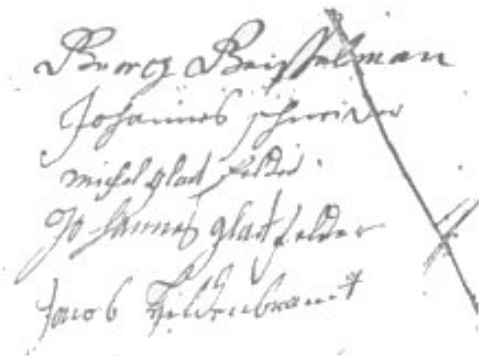 Georg Beisselman
Johannes schreiber
michel glad felder
Johannes gladfelder
Jacob Hildenbrant